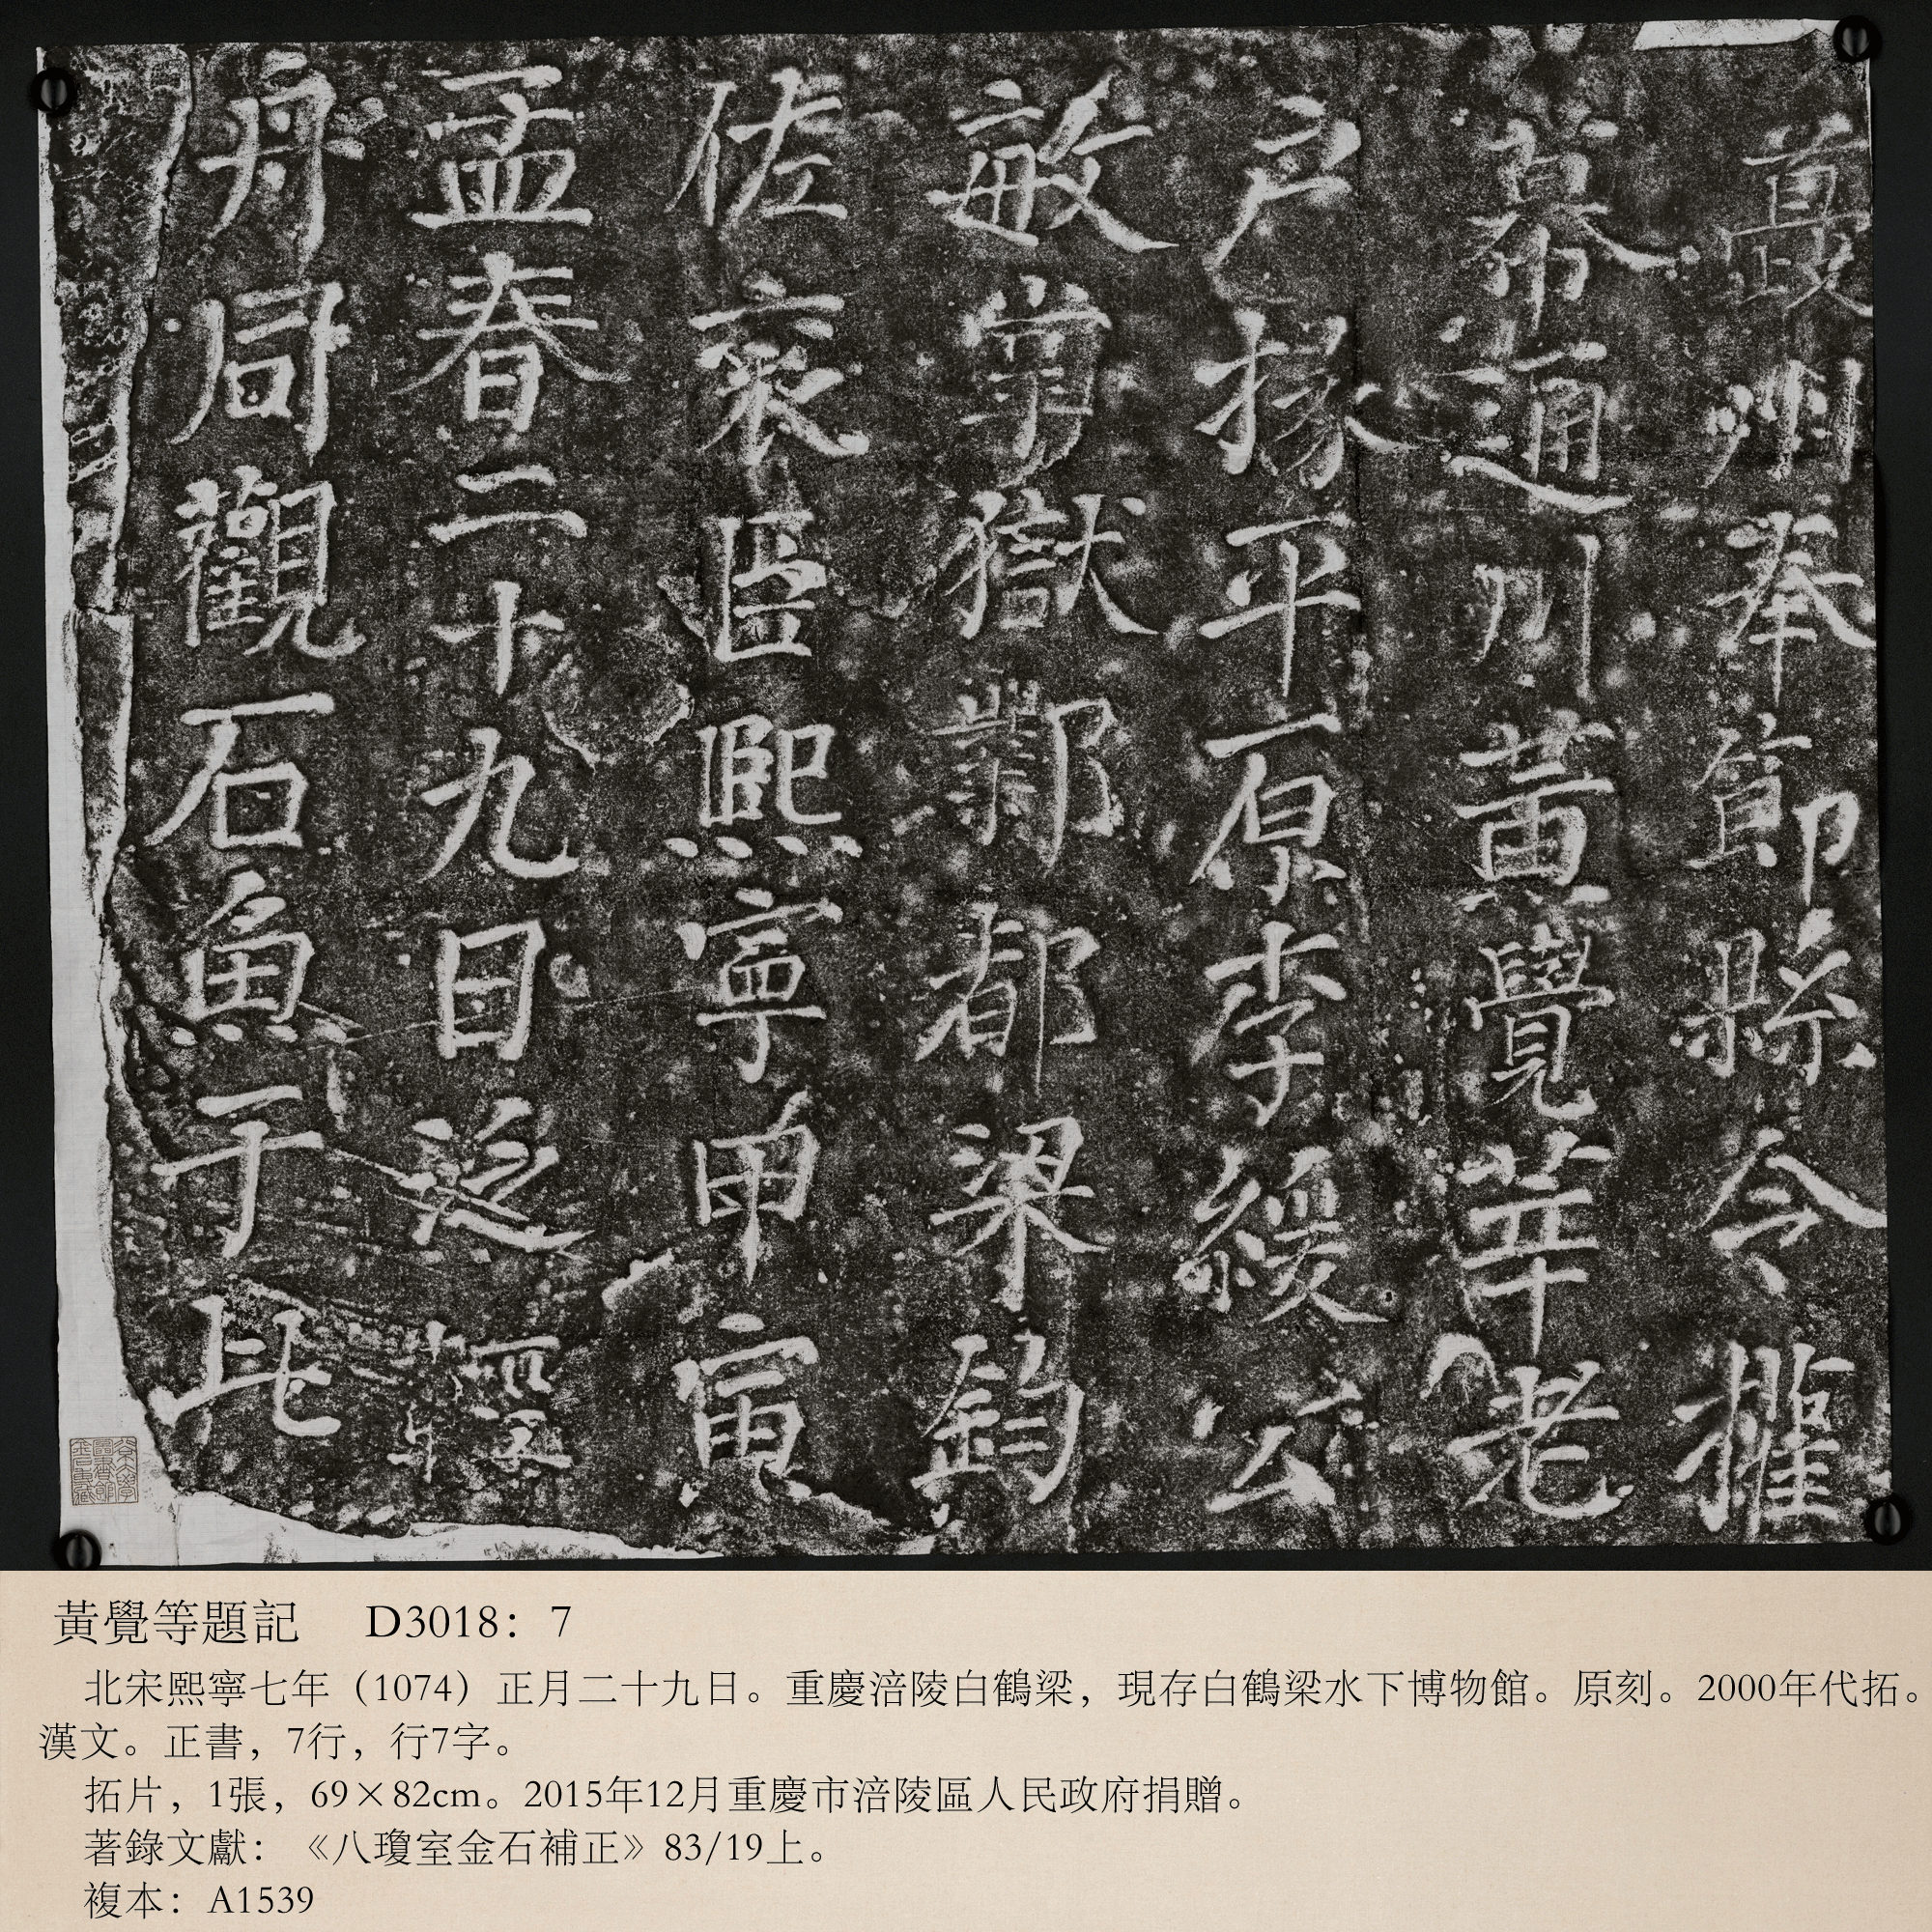 夔州奉節縣令權
幕通川黃覺莘老
户掾平原李緩公
敏掌獄鄴都梁鈞
佐袁臣熙寧甲寅
孟春二十九日泛輕
舟同觀石魚于此
黃覺等題記 D3018：7
北宋熙寧七年（1074）正月二十九日。重慶涪陵白鶴梁，現存白鶴梁水下博物館。原刻。2000年代拓。
漢文。正書，7行，行7字。
拓片，1張，69×82cm。2015年12月重慶市涪陵區人民政府捐贈。
著錄文獻：《八瓊室金石補正》83/19上。
複本：A1539